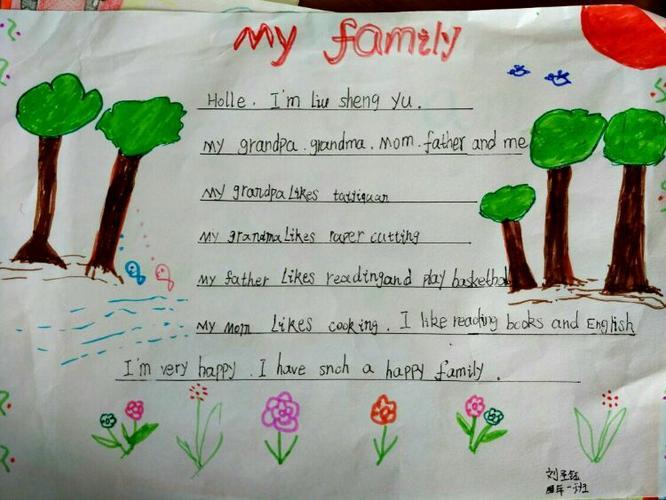 My family
Holle. I'm Liu sheng yu.
My grandpa. grandma. Mom. father and me
My grandpa Likes taijiquan
My grandma Likes paper cutting
My father Likes reading and play basketball
My Mom Likes cooking. I like reading books and English
I'm very happy. I have snch a happy family.
刘圣钰
四年一班